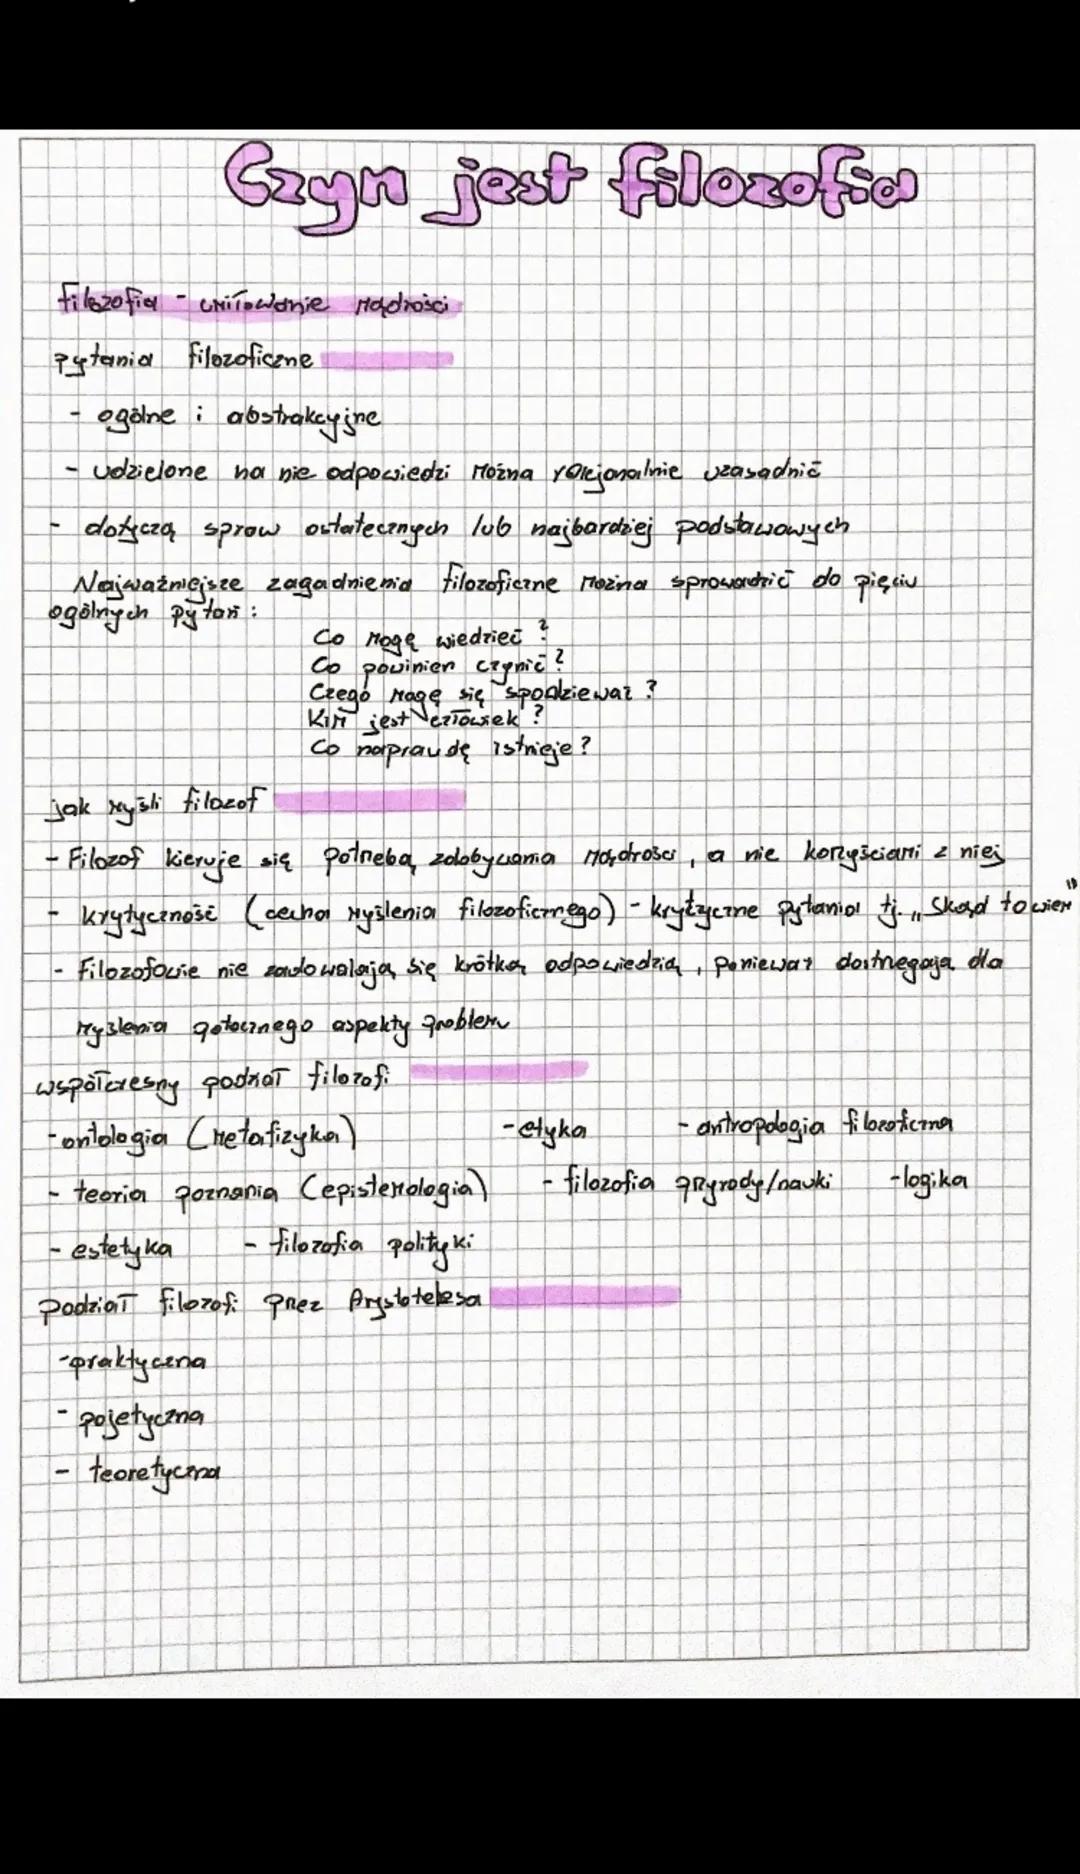 Czym jest filozofia
filozofia - umiłowanie mądrości
pytania filozoficzne
- ogólne i abstrakcyjne
- udzielone na nie odpowiedzi można racjonalnie uzasadnić
- dotyczą spraw ostatecznych lub najbardziej podstawowych
Najważniejsze zagadnienia filozoficzne można sprowadzić do pięciu
ogólnych pytań :
Co mogę wiedzieć ?
Co powinien czynić ?
Czego mogę się spodziewać ?
Kim jest człowiek ?
Co naprawdę istnieje ?
jak myśli filozof
- Filozof kieruje się potrzebą zdobywania mądrości , a nie korzyściami z niej
- krytyczność (cecha myślenia filozoficznego) - krytyczne pytania tj. „Skąd to wiem"
- Filozofowie nie zadowalają się krótką odpowiedzią , ponieważ dostrzegają dla
myślenia potocznego aspekty problemu
współczesny podział filozofi
- ontologia (metafizyka) - etyka - antropologia filozoficzna
- teoria poznania (epistemologia) - filozofia przyrody/nauki - logika
- estetyka - filozofia polityki
podział filozofi przez Arystotelesa
- praktyczna
- pojetyczna
- teoretyczna